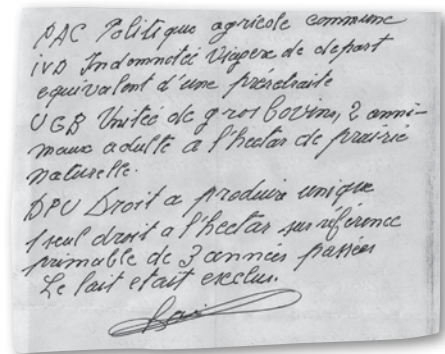 PAC Politique agricole commune
IVD Indemnitée Viagere de depart
equivalent d'une préretraite
UGB Unitée de gros bovins, 2 anni-
maux adulte a l'hectar de prairie
naturelle.
DPU Droit a produire unique
1 seul droit a l'hectar sur référence
primable de 3 années passées
Le lait etait exclus.